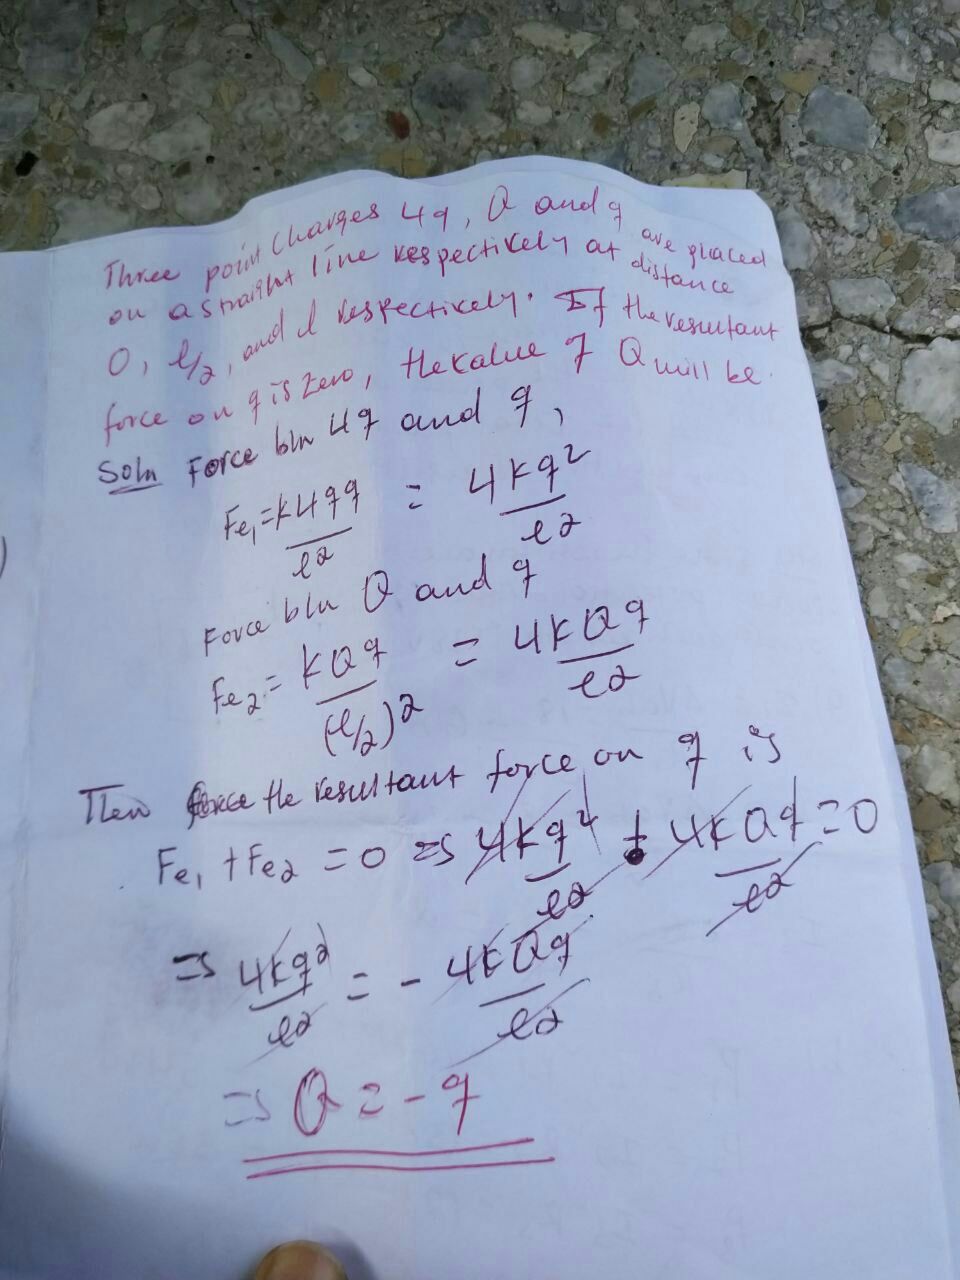 Three point charges 4q, Q and q are placed
on a straight line respectively at distance
0, l/2, and l respectively. If the resultant
force on q is zero, the value of Q will be.
Soln Force b/n 4q and q,
Fe₁ = k4qq/l2 = 4kq2/l2
Force b/n Q and q
Fe2 = kQq/(l/2)2 = 4kQq/l2
Then the resultant force on q is
Fe₁ + Fe2 = 0 => 4kq2/l2 + 4kQq/l2 = 0
=> 4kq2/l2 = - 4kQq/l2
=> Q = - q